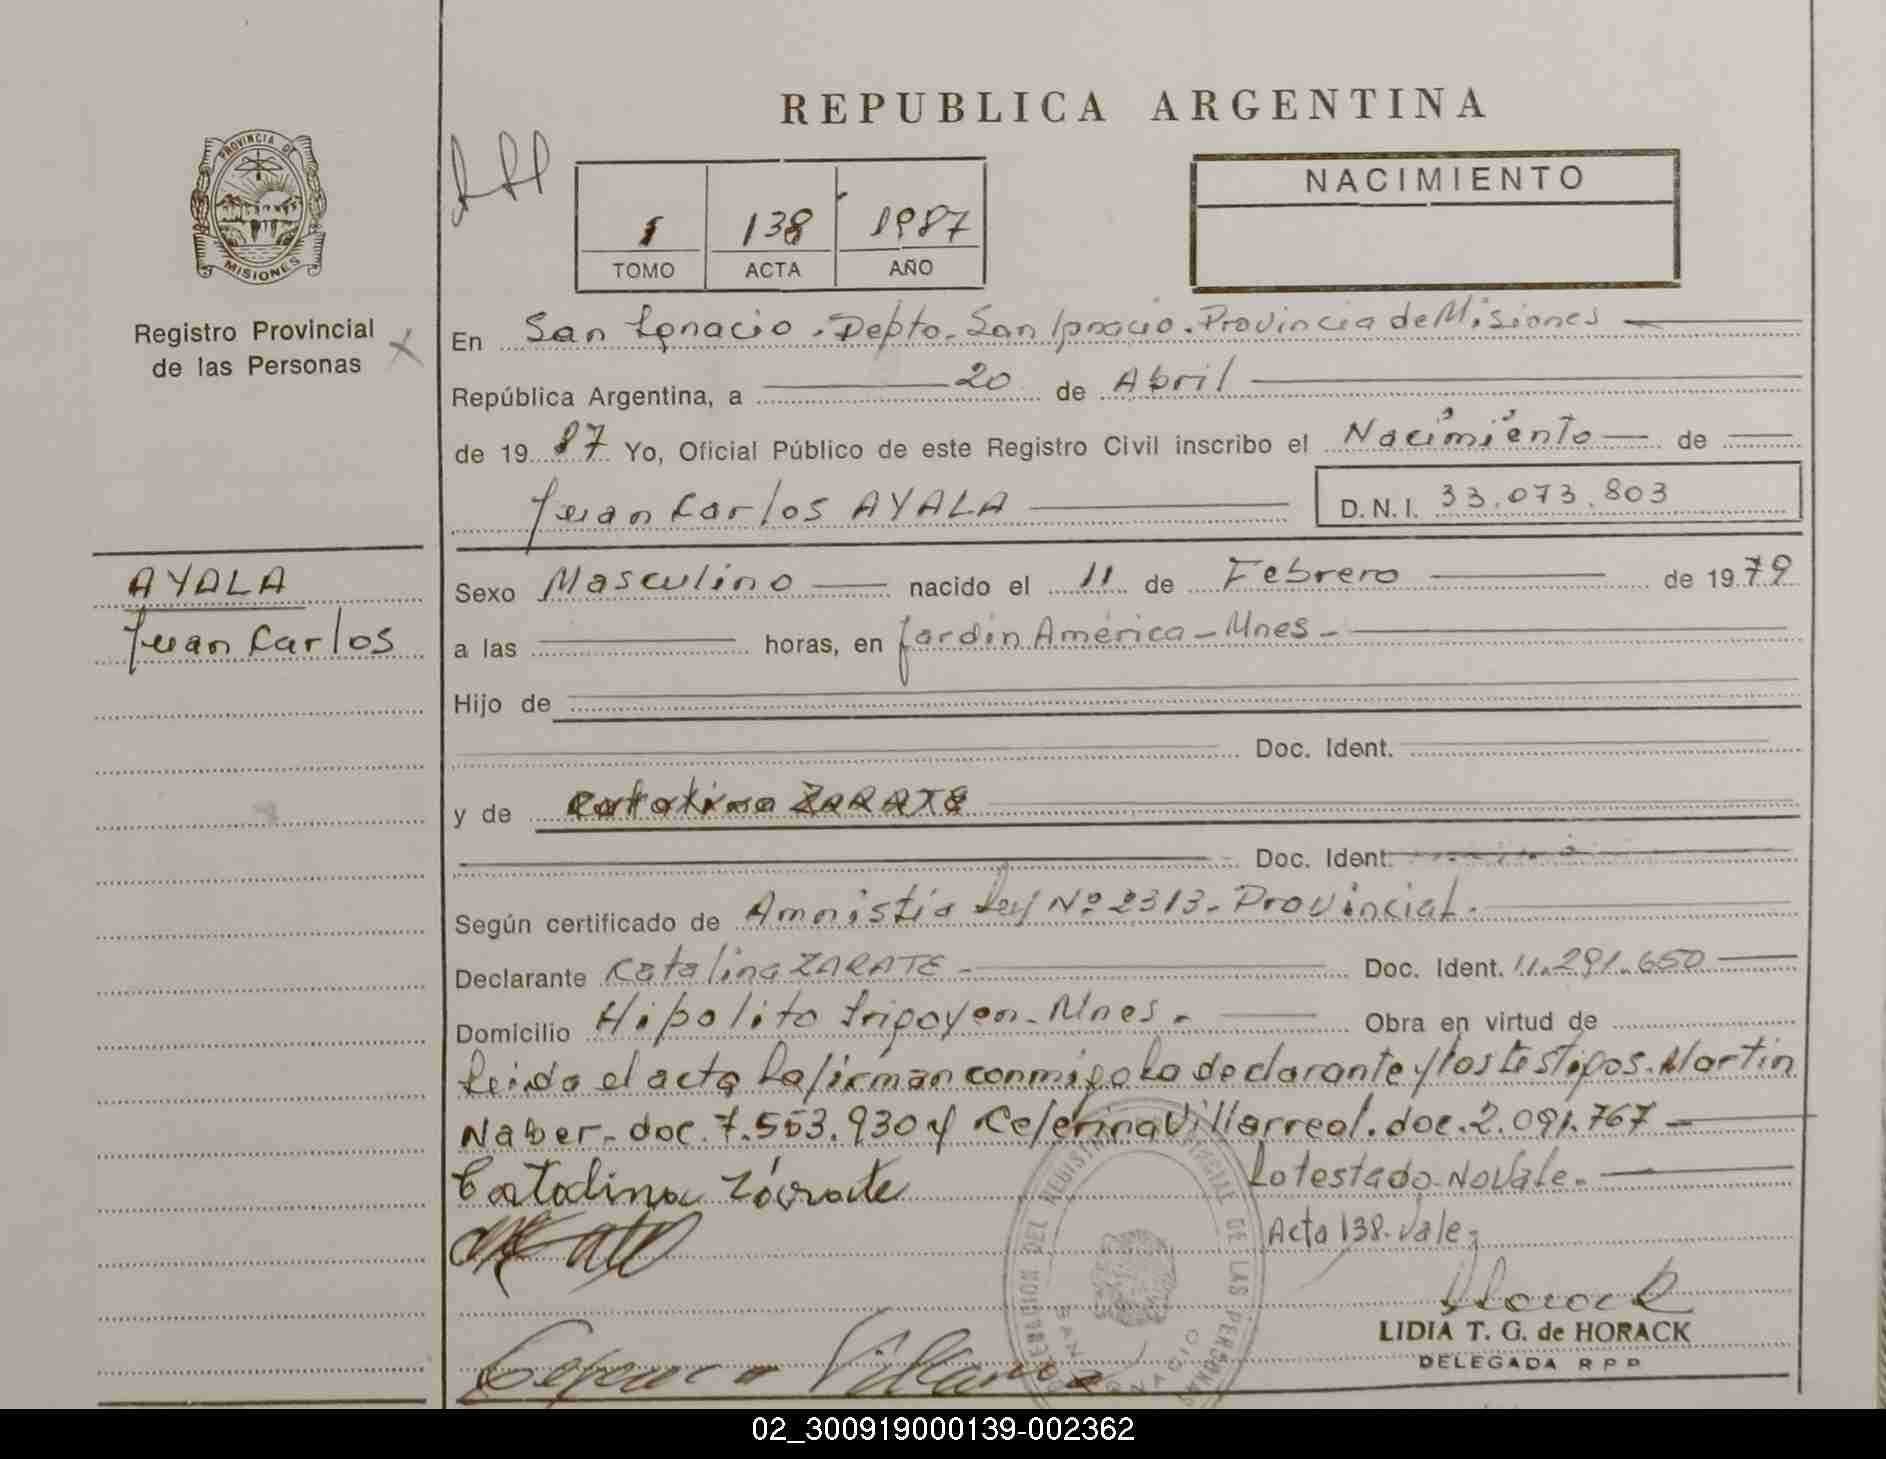 REPUBLICA ARGENTINA
PROVINCIA DE
MISIONES
Registro Provincial
de las Personas
1 138 1987
TOMO ACTA AÑO
NACIMIENTO
En San Ignacio. Depto. San Ignacio. Provincia de Misiones
República Argentina, a 20 de Abril
de 1987 Yo, Oficial Público de este Registro Civil inscribo el Nacimiento de
Juan Carlos AYALA D.N.I. 33.073.803
AYALA
Juan Carlos
Sexo Masculino nacido el 11 de Febrero de 1979
a las horas, en Jardín América - Mnes -
Hijo de
Doc. Ident.
y de Catalina ZARATE
Doc. Ident.
Según certificado de Amnistía Ley Nº 2313 - Provincial.
Declarante Catalina ZARATE - Doc. Ident. 11.291.650
Domicilio Hipolito Irigoyen - Mnes - Obra en virtud de
Leida el acta la firman conmigo la declarante y los testigos. Martin
Naber - doc. 7.553.930 y Ceferina Villarreal. doc. 2.091.767
Catalina Zárate Lo testado - No Vale.
Acta 138 - Vale.
LIDIA T. G. de HORACK
DELEGADA R P P
DELEGACION DEL REGISTRO PROVINCIAL DE LAS PERSONAS
SAN IGNACIO
02_300919000139-002362